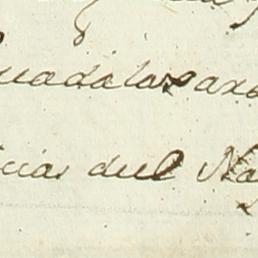 Guadalaxa
cias del Na